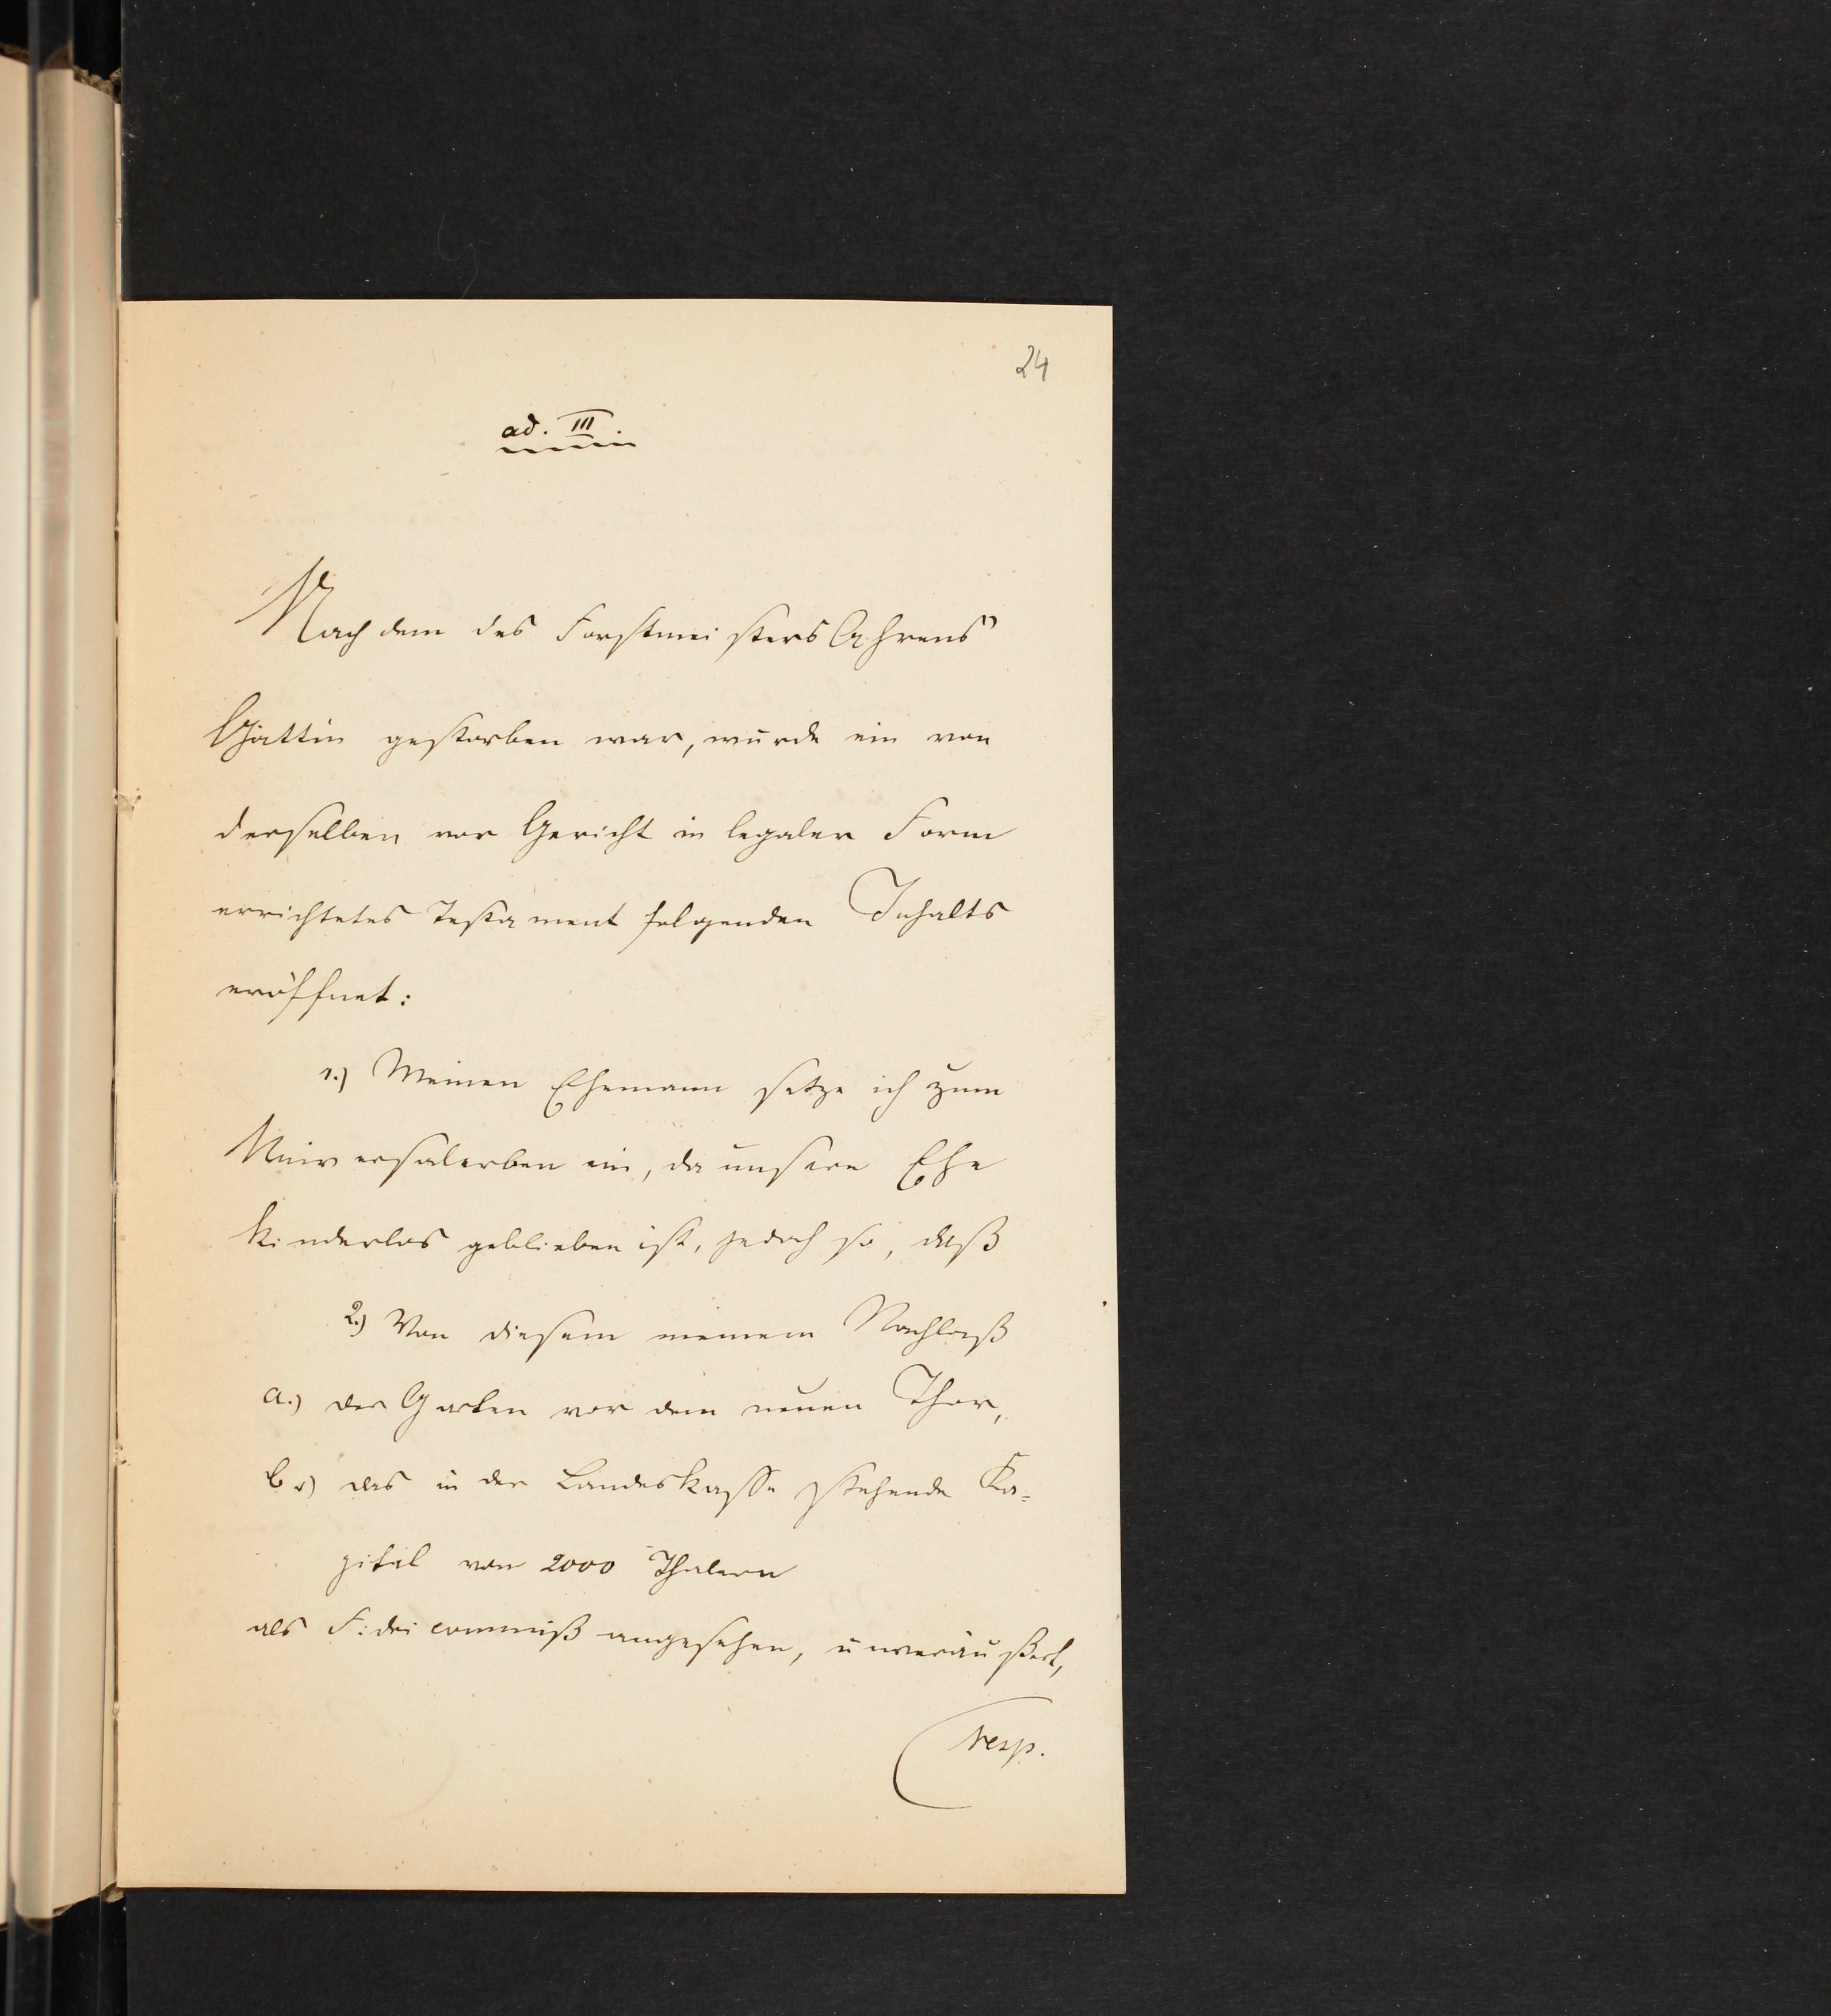 24
ad. III.
Nachdem des Forstmeisters Ahrens
Gattin gestorben war, wurde ein von
derselben vor Gericht in legaler Form
errichtetes Testament folgenden Inhalts
eröffnet:
1.) Meinen Ehemann setze ich zum
Universalerben ein, da unsere Ehe
kinderlos geblieben ist, jedoch so, daß
2.) Von diesem meinem Nachlaß
a.) der Garten vor dem neuen Thor,
b.) das in der Landeskasse stehende Ka=
pital von 2000 Thalern
als Fideicommiß angesehen, unveräußert,
resp.